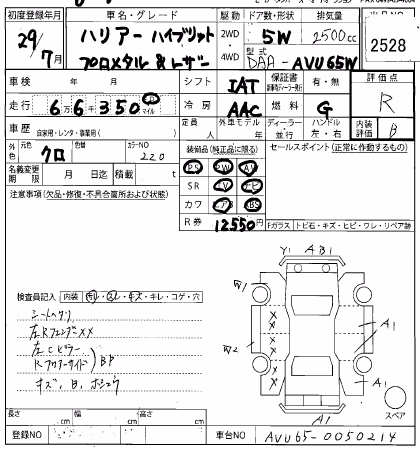 初度登録年月 車名・グレード 駆動 ドア数・形状 排気量
29/7月 ハリアーハイブリット 2WD 5W 2500cc
プロメタル&レザー 4WD 型式 DAA-AVU65W
2528
車検 年 月 シフト IAT 保証書 有・無 評価点
走行 6万6千350 km マイル 冷房 AAC 燃料 G R
車歴 自家用・レンタ・事業用( ) 定員 人 外車モデル 年 ディーラー 並行 ハンドル 左・右 内装評価 B
外色 元色 クロ 色替 カラーNO 220 装備品(純正品に限る) セールスポイント(正常に作動するもの)
名義変更期限 月 日迄 積載 t PS PW AW
注意事項(欠品・修復・不具合箇所および状態) SR TV ナビ
カワ エアB ABS
R券 12550円 Fガラス トビ石・キズ・ヒビ・ワレ・リペア跡
Y1 A B1
検査員記入 内装 汚レ・スレ・キズ・キレ・コゲ・穴
W1
左Rフェンダ XX
左Cピラー
Rフロアーサイド BP
キズ、B、ホシュウ
W2
X
X
X
X
X
A1
A1
A1
スペア
長さ cm 幅 cm 高さ cm
登録NO 車台NO AVU65-0050214